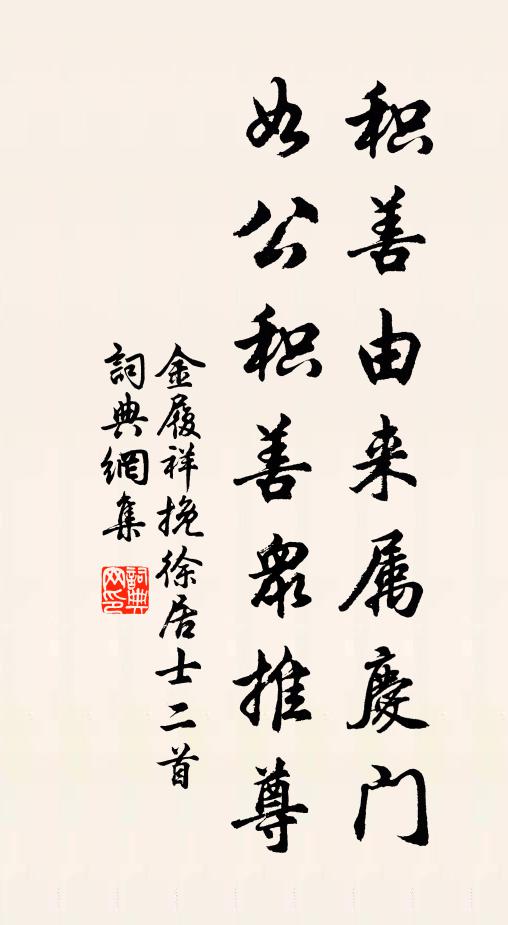 积善由来属庆门
如公积善众推尊
金履祥挽徐居士二首
词典網集
詞典
网印